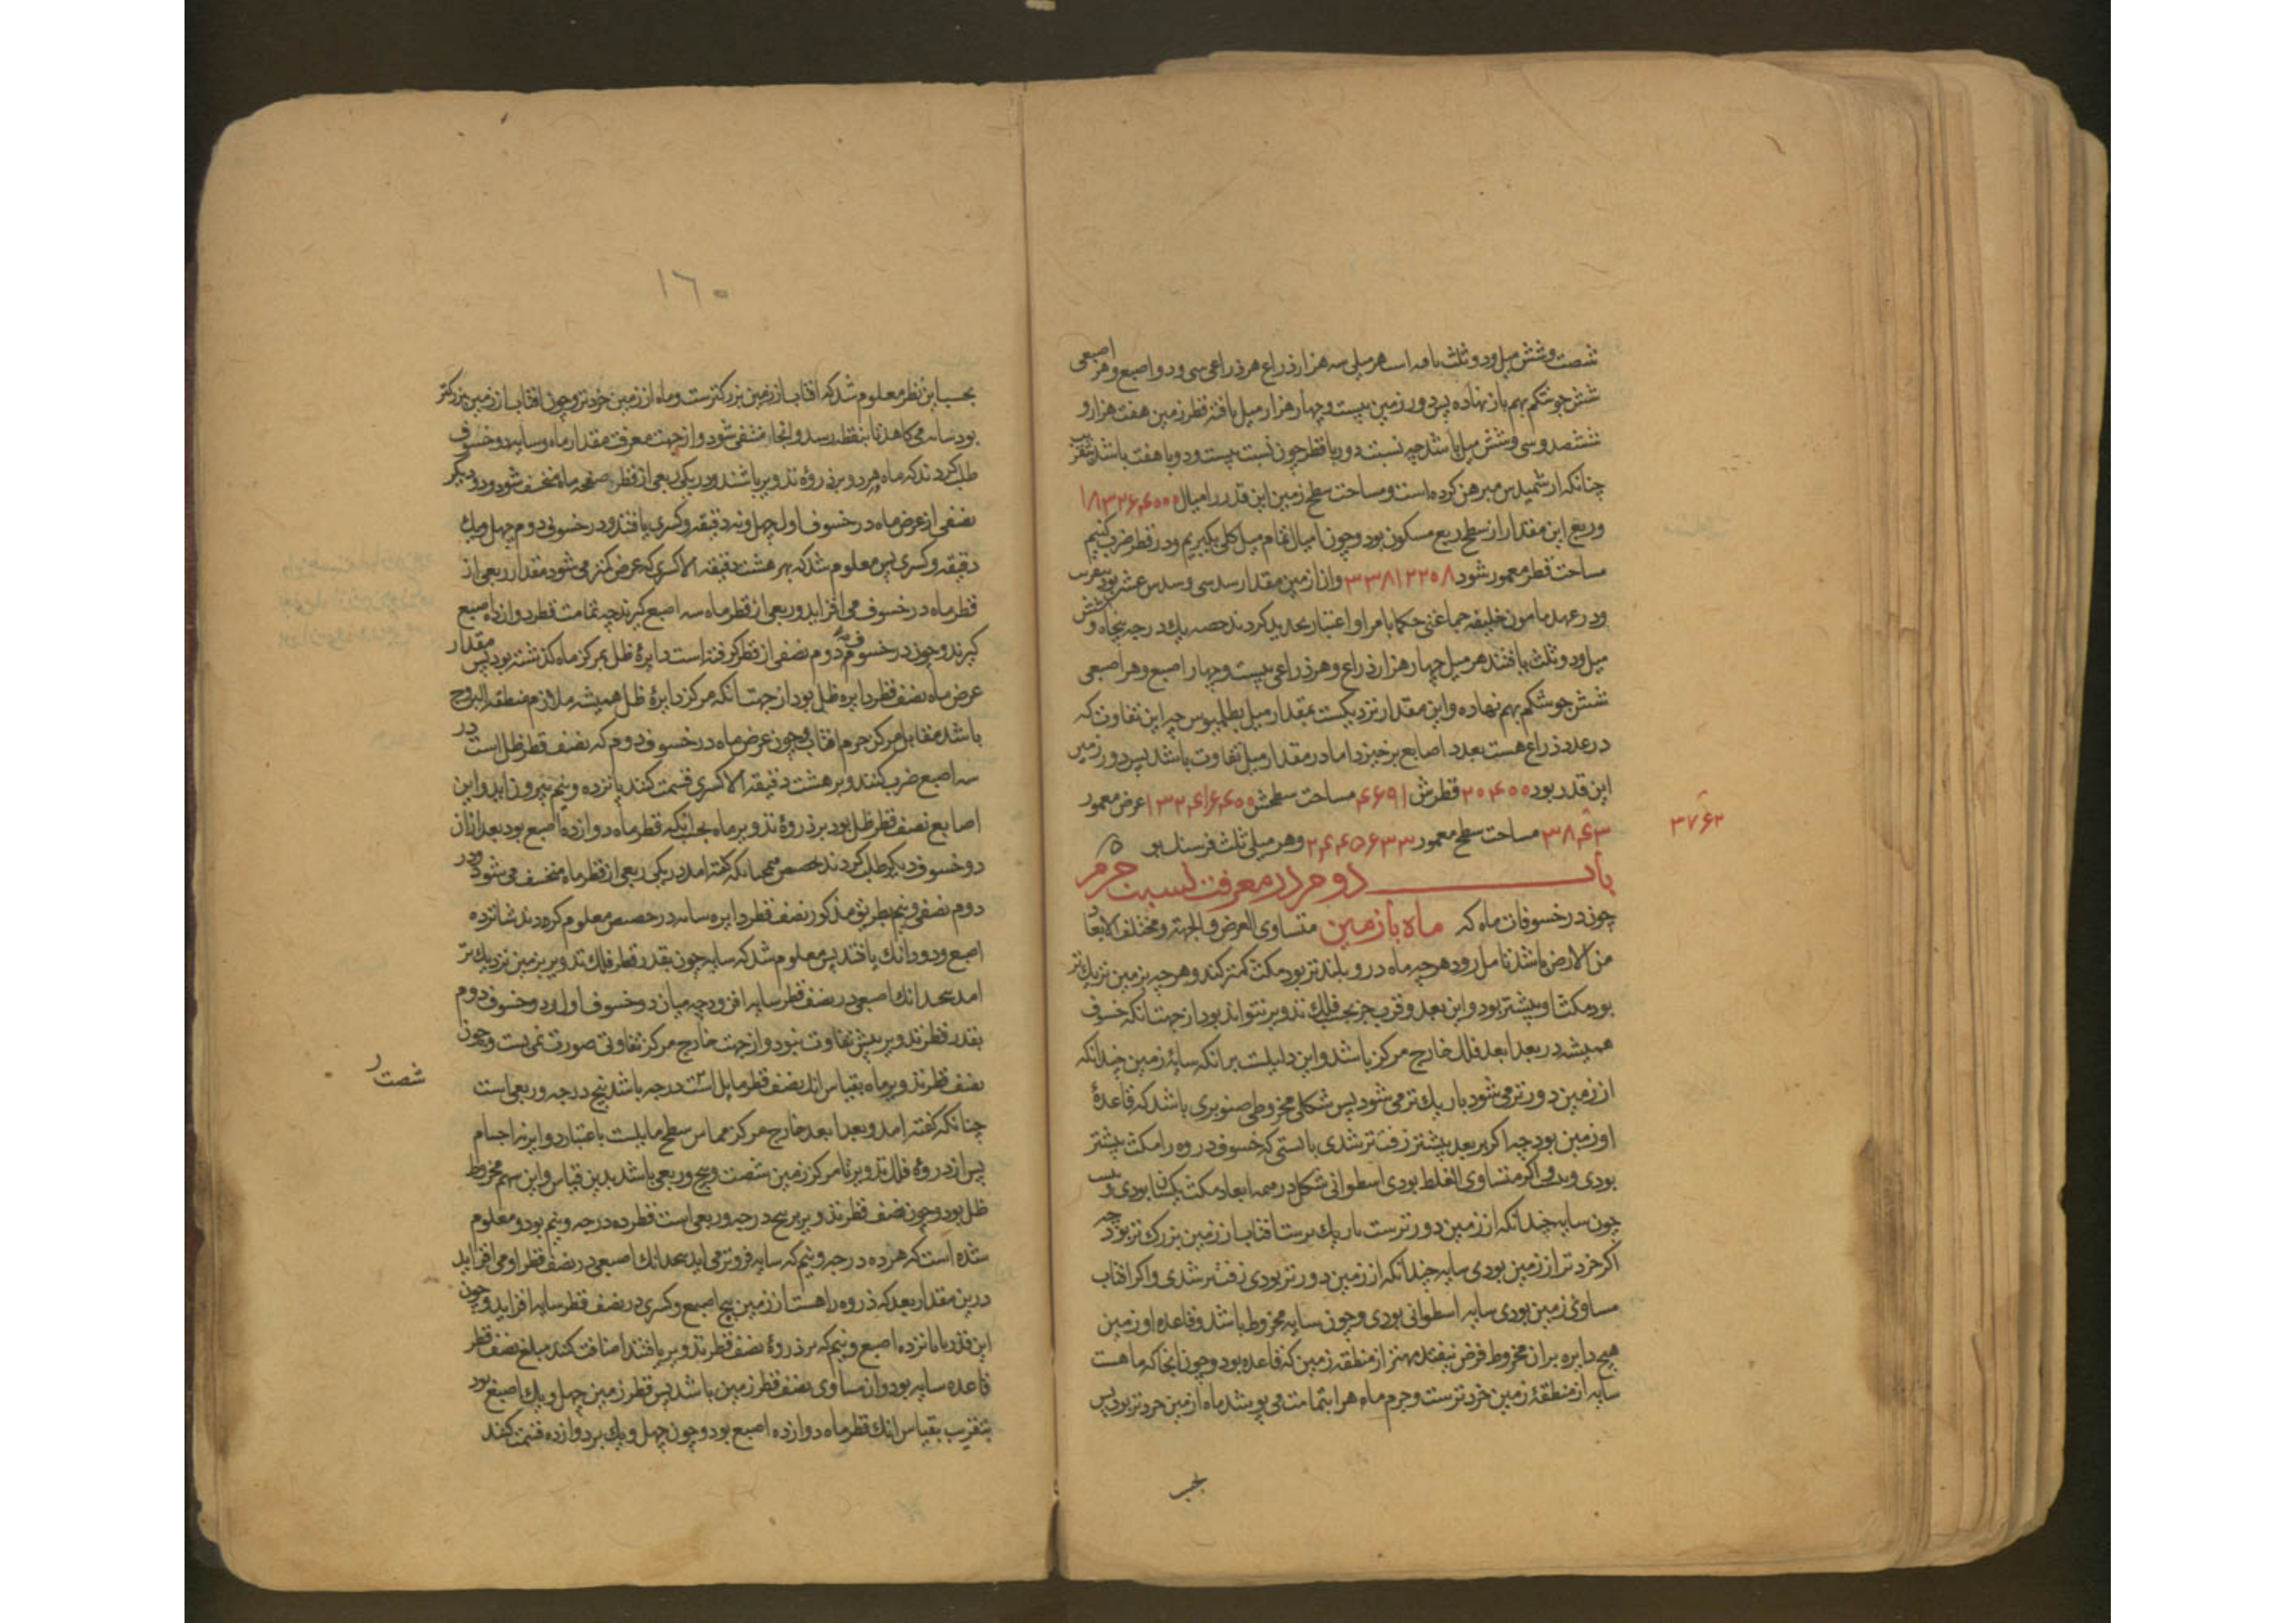 شصت وشش میل ودو ثلث یافته است هر میلی سه هزار ذراع هر ذراعی سی ودو اصبع وهر اصبعی
شش جو شکم بهم باز نهاده پس دور زمین بیست وچهار هزار میل یافته قطر زمین هفت هزار و
ششصد وسی وشش میل باشد چه نسبت دور با قطر چون نسبت بیست ودو با هفت باشد بتقریب
چنانکه ارشمیدس مبرهن کرده است ومساحت سطح زمین این قدر را میال ۱۸۳۲۶۴۰۰۰
وربع این مقدار از سطح ربع مسکون بود وچون امیال تمام میل کلی بگیریم ودر قطر ضرب کنیم
مساحت قطر معمور شود ۳۳۸۱۲۲۵۸ وان از زمین مقدار سدسی وسدس عشر بود بتقریب
ودر عهد مامون خلیفه جماعتی حکما بامر او اعتبار تجدید کردند حصه یک درجه پنجاه و شش
میل ودو ثلث یافتند هر میل چهار هزار ذراع وهر ذراعی بیست وچهار اصبع وهر اصبعی
شش جو شکم بهم نهاده واین مقدار نزدیکست بمقدار میل بطلمیوس چه این تفاوت که
در عدد ذراع هست بعدد اصابع برخیزد اما در مقدار میل تفاوت باشد پس دور زمین
این قدر بود ۲۰۴۰۰ قطرش ۶۴۹۱ مساحت سطحش ۱۳۲۴۱۶۴۰۰ عرض معمور
۳۸۴۳ مساحت سطح معمور ۲۴۴۵۶۳۳ وهر میلی ثلث فرسنک بود
۳۷۶۲
باب دوم در معرفت نسبت جرم
ماه با زمین
چون در خسوفات ماه که متساوی العرض والجهة ومختلف الابعاد
من الارض باشد تامل رود هر چه ماه در و بلندتر بود مکث کمتر کند وهر چه بزمین نزدیکتر
بود مکث او بیشتر بود واین بعد وقرب جز بحسب فلک تدویر نتواند بود از جهت آنکه خسوف
همیشه در بعد ابعد فلک خارج مرکز باشد واین دلیلست بر انکه سایهٔ زمین چندانکه
از زمین دورتر می شود باریک تر می شود پس شکلی مخروطی صنوبری باشد که قاعدهٔ
او زمین بود چه اکر بر بعد بیشتر زفت تر شدی بایستی که خسوف در ذروه را مکث بیشتر
بودی وبدو اکر متساوی الغلظ بودی اسطوانی شکل در همه ابعاد مکث یکسان بودی ونیست
چون سایه چندانکه از زمین دورترست باریک ترست افتاب از زمین بزرک تر بود چه
اکر خردتر از زمین بودی سایه چندانکه از زمین دورتر بودی زفت تر شدی واکر افتاب
مساوی زمین بودی سایه اسطوانی بودی وچون سایه مخروط باشد وقاعده او زمین
هیچ دایره بر ان مخروط فرض نیفتد مهتر از منطقه زمین که قاعده بود وچون انجا که ماهست
سایه از منطقهٔ زمین خردترست وجرم ماه هرا بتمامت می پوشد ماه از زمین خردتر بود پس
بحسب
۱۶۰
بحسب این نظر معلوم شد که افتاب از زمین بزرکترست وماه از زمین خردتر وچون افتاب از زمین بزرکتر
بود سایه می کاهد تا بنقطه رسد وانجا منتفی شود واز جهت معرفت مقدار ماه وسایه دو خسوف
طلب کردند که ماه هر دو بر ذروهٔ تدویر باشد ودر یکی ربعی از قطر صفحه ماه منخسف شود ودر دیکر
نصفی از عرض ماه در خسوف اول چهل ونه دقیقه وکسری یافتند ودر خسوفی دوم چهل ویک
دقیقه وکسری پس معلوم شد که بهر هشت دقیقه الا کسری که عرض کمتر می شود مقدار ربعی از
قطر ماه در خسوف می افزاید وربعی از قطر ماه سه اصبع کیرند چه تمامت قطر دوازده اصبع
کیرند وچون در خسوف دوم نصفی از قطر کرفته است دایرهٔ ظل بمرکز ماه کذشته بود پس مقدار
عرض ماه نصف قطر دایره ظل بود از جهت انکه مرکز دایرهٔ ظل همیشه ملازم منطقه البروج
باشد مقابل مرکز جرم افتاب وچون عرض ماه در خسوف دوم که نصف قطر ظل است در
سه اصبع ضرب کنند وبر هشت دقیقه الا کسری قسمت کنند پانزده ونیم بیرون اید واین
اصابع نصف قطر ظل بود بر ذروهٔ تدویر ماه بحسب انکه قطر ماه دوازده اصبع بود بعد از ان
دو خسوف دیکر طلب کردند حضیض همچنانکه کفته امد در یکی ربعی از قطر ماه منخسف می شود ودر
دوم نصفی ونیم بطریق مذکور نصف قطر دایره سایه در حضیض معلوم کردند شانزده
اصبع ودو دانک یافتند پس معلوم شد که سایه چون بقدر قطر فلک تدویر بزمین نزدیک تر
امد پنج دانک اصبعی در نصف قطر سایه افزود چه میان دو خسوف اول ودو خسوف دوم
بقدر قطر تدویر بیش تفاوت نبود واز جهت خارج مرکز تفاوتی صورت نمی بست وچون
نصف قطر تدویر ماه بقیاس انک نصف قطر مایل است درجه باشد پنج درجه وربعی است
شصت
چنانکه کفته امد وبعد ابعد خارج مرکز مماس سطح مایلست باعتبار دوایر نه اجسام
پس از ذروهٔ فلک تدویر تا مرکز زمین شصت وپنج وربعی باشد بدین قیاس واین سهم مخروط
ظل بود وچون نصف قطر تدویر پنج درجه وربعی است قطر ده درجه ونیم بود ومعلوم
شده است که هر ده درجه ونیم که سایه فروتر می اید پنج دانک اصبعی در نصف قطر او می افزاید
درین مقدار بعد که ذروه راهست از زمین پنج اصبع وکسری در نصف قطر سایه افزاید وچون
این قدر با پانزده اصبع ونیم که بر ذروهٔ نصف قطر تدویر یافتند اضافت کند مبلغ نصف قطر
قاعده سایه بود وان مساوی نصف قطر زمین باشد پس قطر زمین چهل ویک اصبع بود
بتقریب بقیاس انک قطر ماه دوازده اصبع بود وچون چهل ویک بر دوازده قسمت کنند